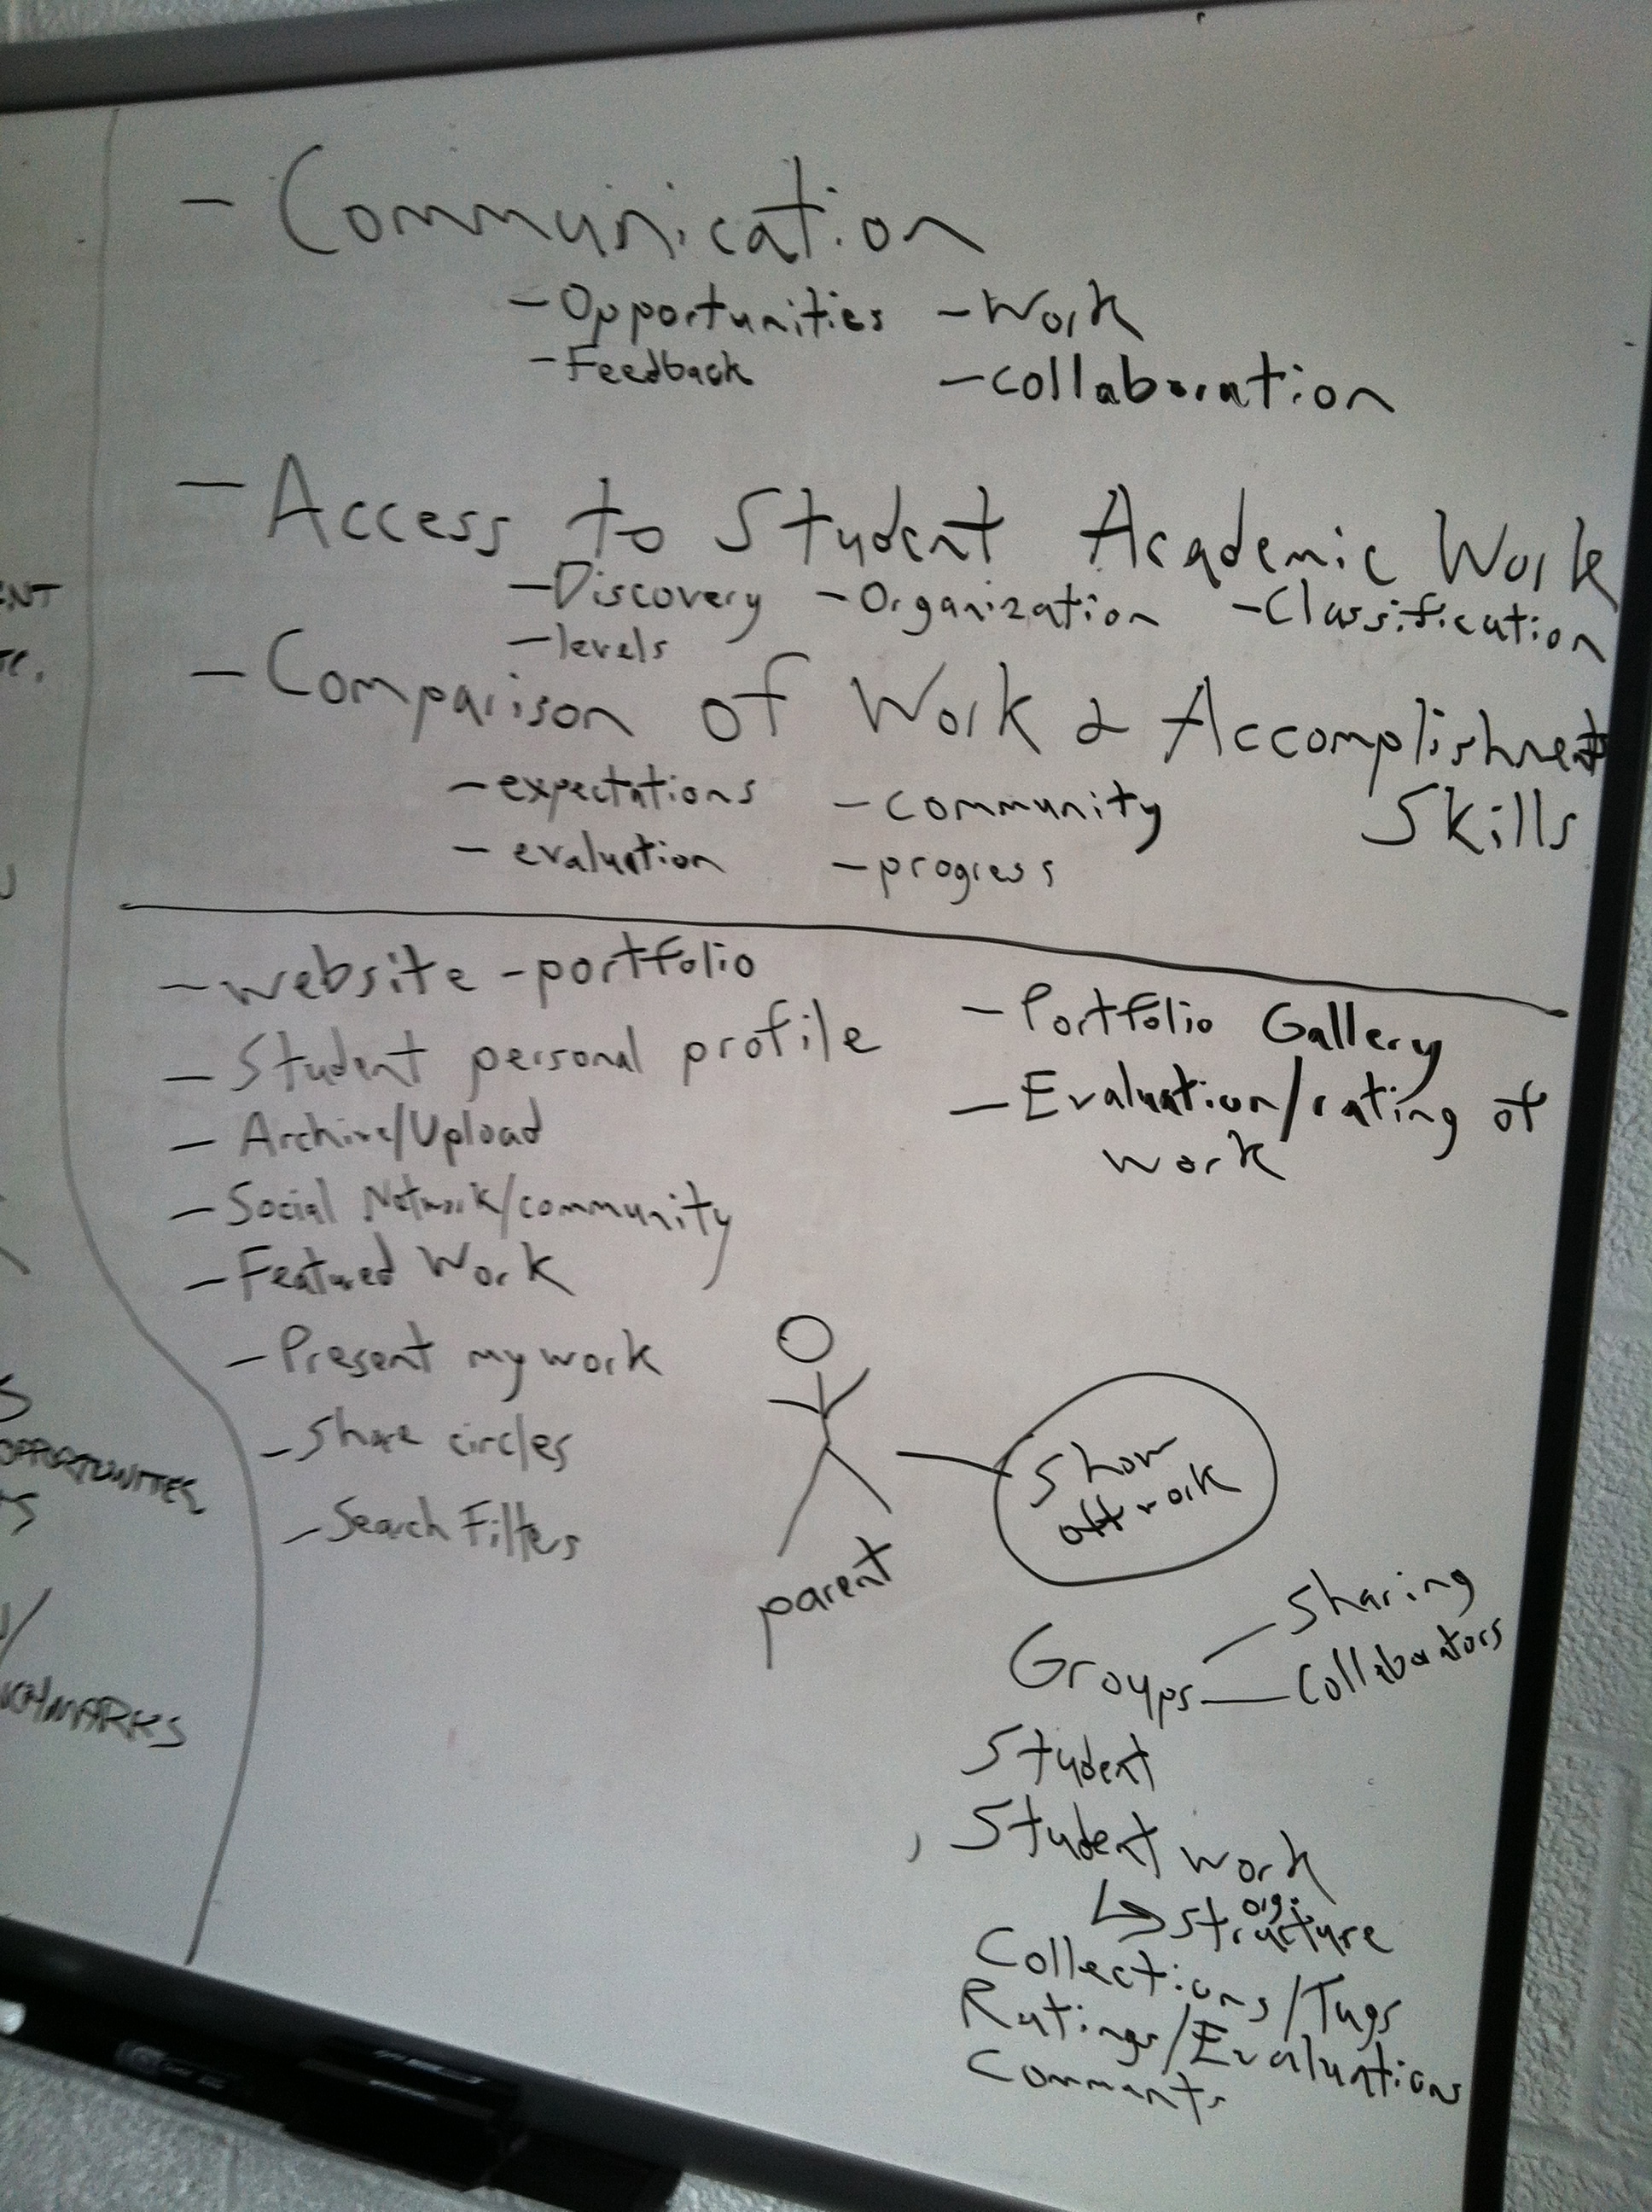 - Communication
- Opportunities - Work
- Feedback - collaboration
- Access to Student Academic Work
- Discovery - Organization - Classification
- levels
- Comparison of Work & Accomplishments
Skills
- expectations - community
- evaluation - progress
- website - portfolio
- Student personal profile
- Archive/Upload
- Social Network/community
- Featured Work
- Present my work
- Share circles
- Search Filters
- Portfolio Gallery
- Evaluation/rating of
work
parent
Show
off work
Groups - Sharing
- Collaborators
Student
Student work
↳ org. structure
Collections/Tags
Ratings/Evaluations
Comments
OPPORTUNITIES